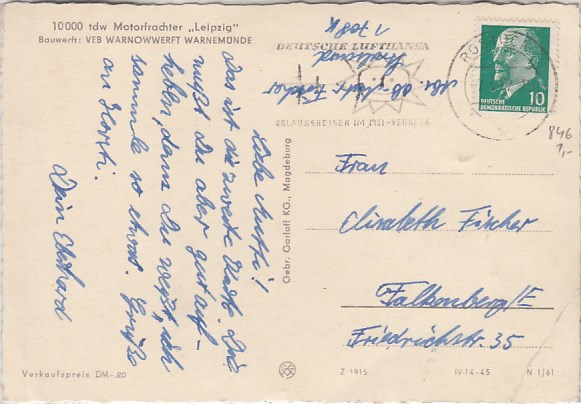 10000 tdw Motorfrachter „Leipzig"
Bauwerft: VEB WARNOWWERFT WARNEMÜNDE
Liebe Mutti!
Das ist die zweite Karte. Die
mußt Du aber gut auf-
heben, denn Du weißt ich
sammle so etwas. Grüße
an Horsti.
Dein Ekkehard
Verkaufspreis DM -,20
Gebr. Garloff KG., Magdeburg
DEUTSCHE LUFTHANSA
URLAUBSREISEN IM MEI-VERKEHR
Stralsund
DEUTSCHE
DEMOKRATISCHE REPUBLIK
10
846
1,-
Frau
Elisabeth Fischer
Falkenberg/E
Friedrichstr. 35
Z 1915
IV-14-45
N 1/61